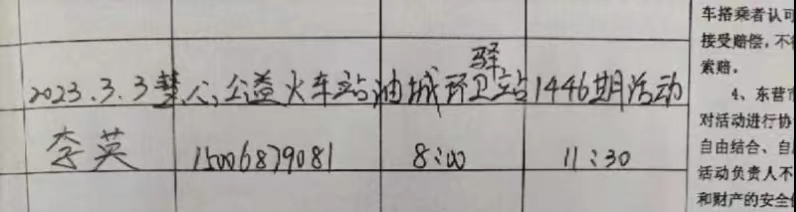 2023.3.3慧人公益火车站油城环卫驿站1446期活动
李英 15006879081 8:00 11:30
车搭乘者认可
接受赔偿，不
索赔。
4、东营市
对活动进行协
自由结合、自
活动负责人不
和财产的安全